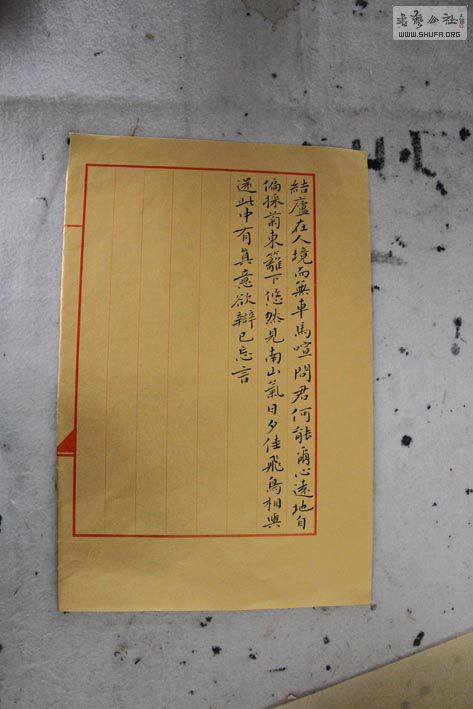 書藝公社
WWW.SHUFA.ORG
結廬在人境而無車馬喧問君何能爾心遠地自
偏採菊東籬下悠然見南山氣日夕佳飛鳥相與
還此中有眞意欲辯已忘言